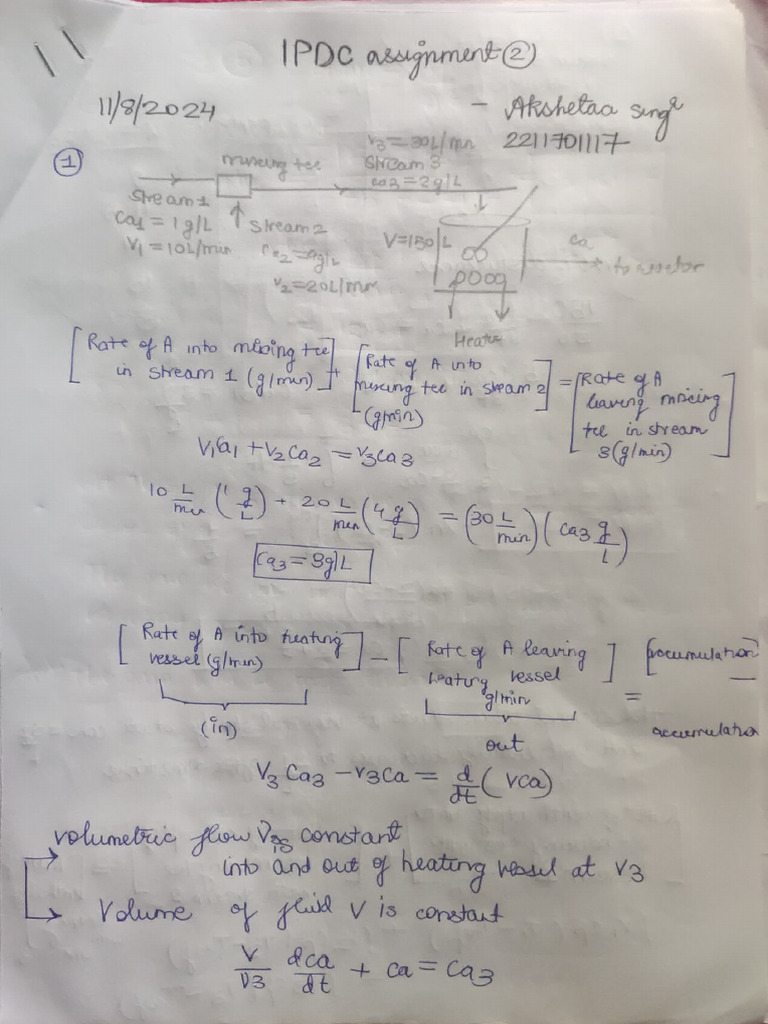 IPDC assignment ②
11/8/2024
- Akshetaa Singh
2211701117
①
mixing tee
V3 = 30L/min
stream 3
ca3 = 2g/L
stream 1
Ca1 = 1 g/L
V1 = 10L/min
stream 2
V2 = 20L/min
V = 150 L
ca
to reactor
Heater
[Rate of A into mixing tee in stream 1 (g/min)] + [Rate of A into mixing tee in stream 2 (g/min)] = [Rate of A leaving mixing tee in stream 3 (g/min)]
V1Ca1 + V2Ca2 = V3Ca3
10 L/min (1 g/L) + 20 L/min (4 g/L) = (30 L/min) (Ca3 g/L)
Ca3 = 3g/L
[Rate of A into heating vessel (g/min)] - [Rate of A leaving heating vessel g/min] = [accumulation]
(in)
out
accumulation
V3 Ca3 - V3 Ca = d/dt (VCa)
volumetric flow V is constant
into and out of heating vessel at V3
Volume of fluid V is constant
V/V3 dca/dt + ca = Ca3